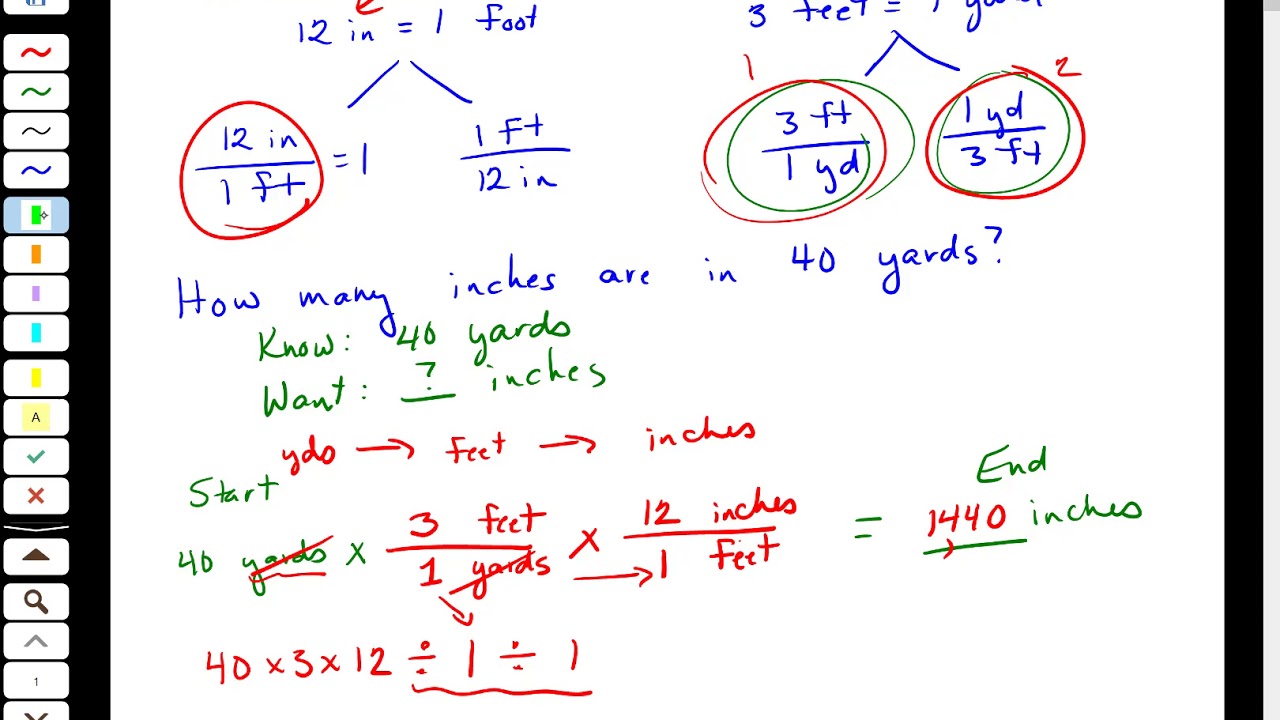 12 in = 1 foot
3 feet = 1 yard
1
2
12 in
1 ft
= 1
1 ft
12 in
3 ft
1 yd
1 yd
3 ft
How many inches are in 40 yards?
Know: 40 yards
Want: ? inches
yds → feet → inches
Start
End
40 yards × 3 feet / 1 yards × 12 inches / 1 feet = 1440 inches
40 × 3 × 12 ÷ 1 ÷ 1
A
1